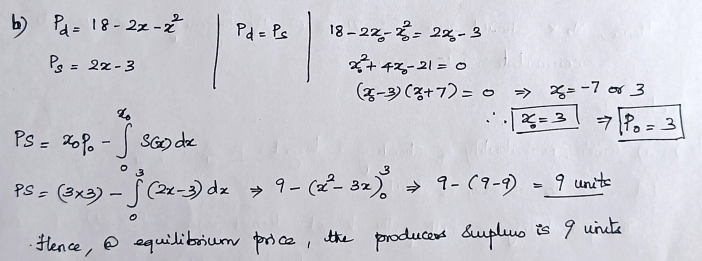 b) Pd = 18 - 2x - x² | Pd = Ps | 18 - 2x₀ - x₀² = 2x₀ - 3
Ps = 2x - 3 | x₀² + 4x₀ - 21 = 0
(x₀-3)(x₀+7) = 0 ⇒ x₀ = -7 or 3
∴ x₀ = 3 ⇒ P₀ = 3
PS = x₀p₀ - ∫₀^x₀ S(x) dx
PS = (3×3) - ∫₀³ (2x-3) dx ⇒ 9 - (x² - 3x)₀³ ⇒ 9 - (9-9) = 9 units
Hence, @ equilibrium price, the producers Surplus is 9 units